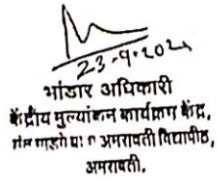 23-9-2021
भांडार अधिकारी
केंद्रीय मुल्यांकन कार्यक्रम केंद्र,
अमरावती विद्यापीठ,
अमरावती.